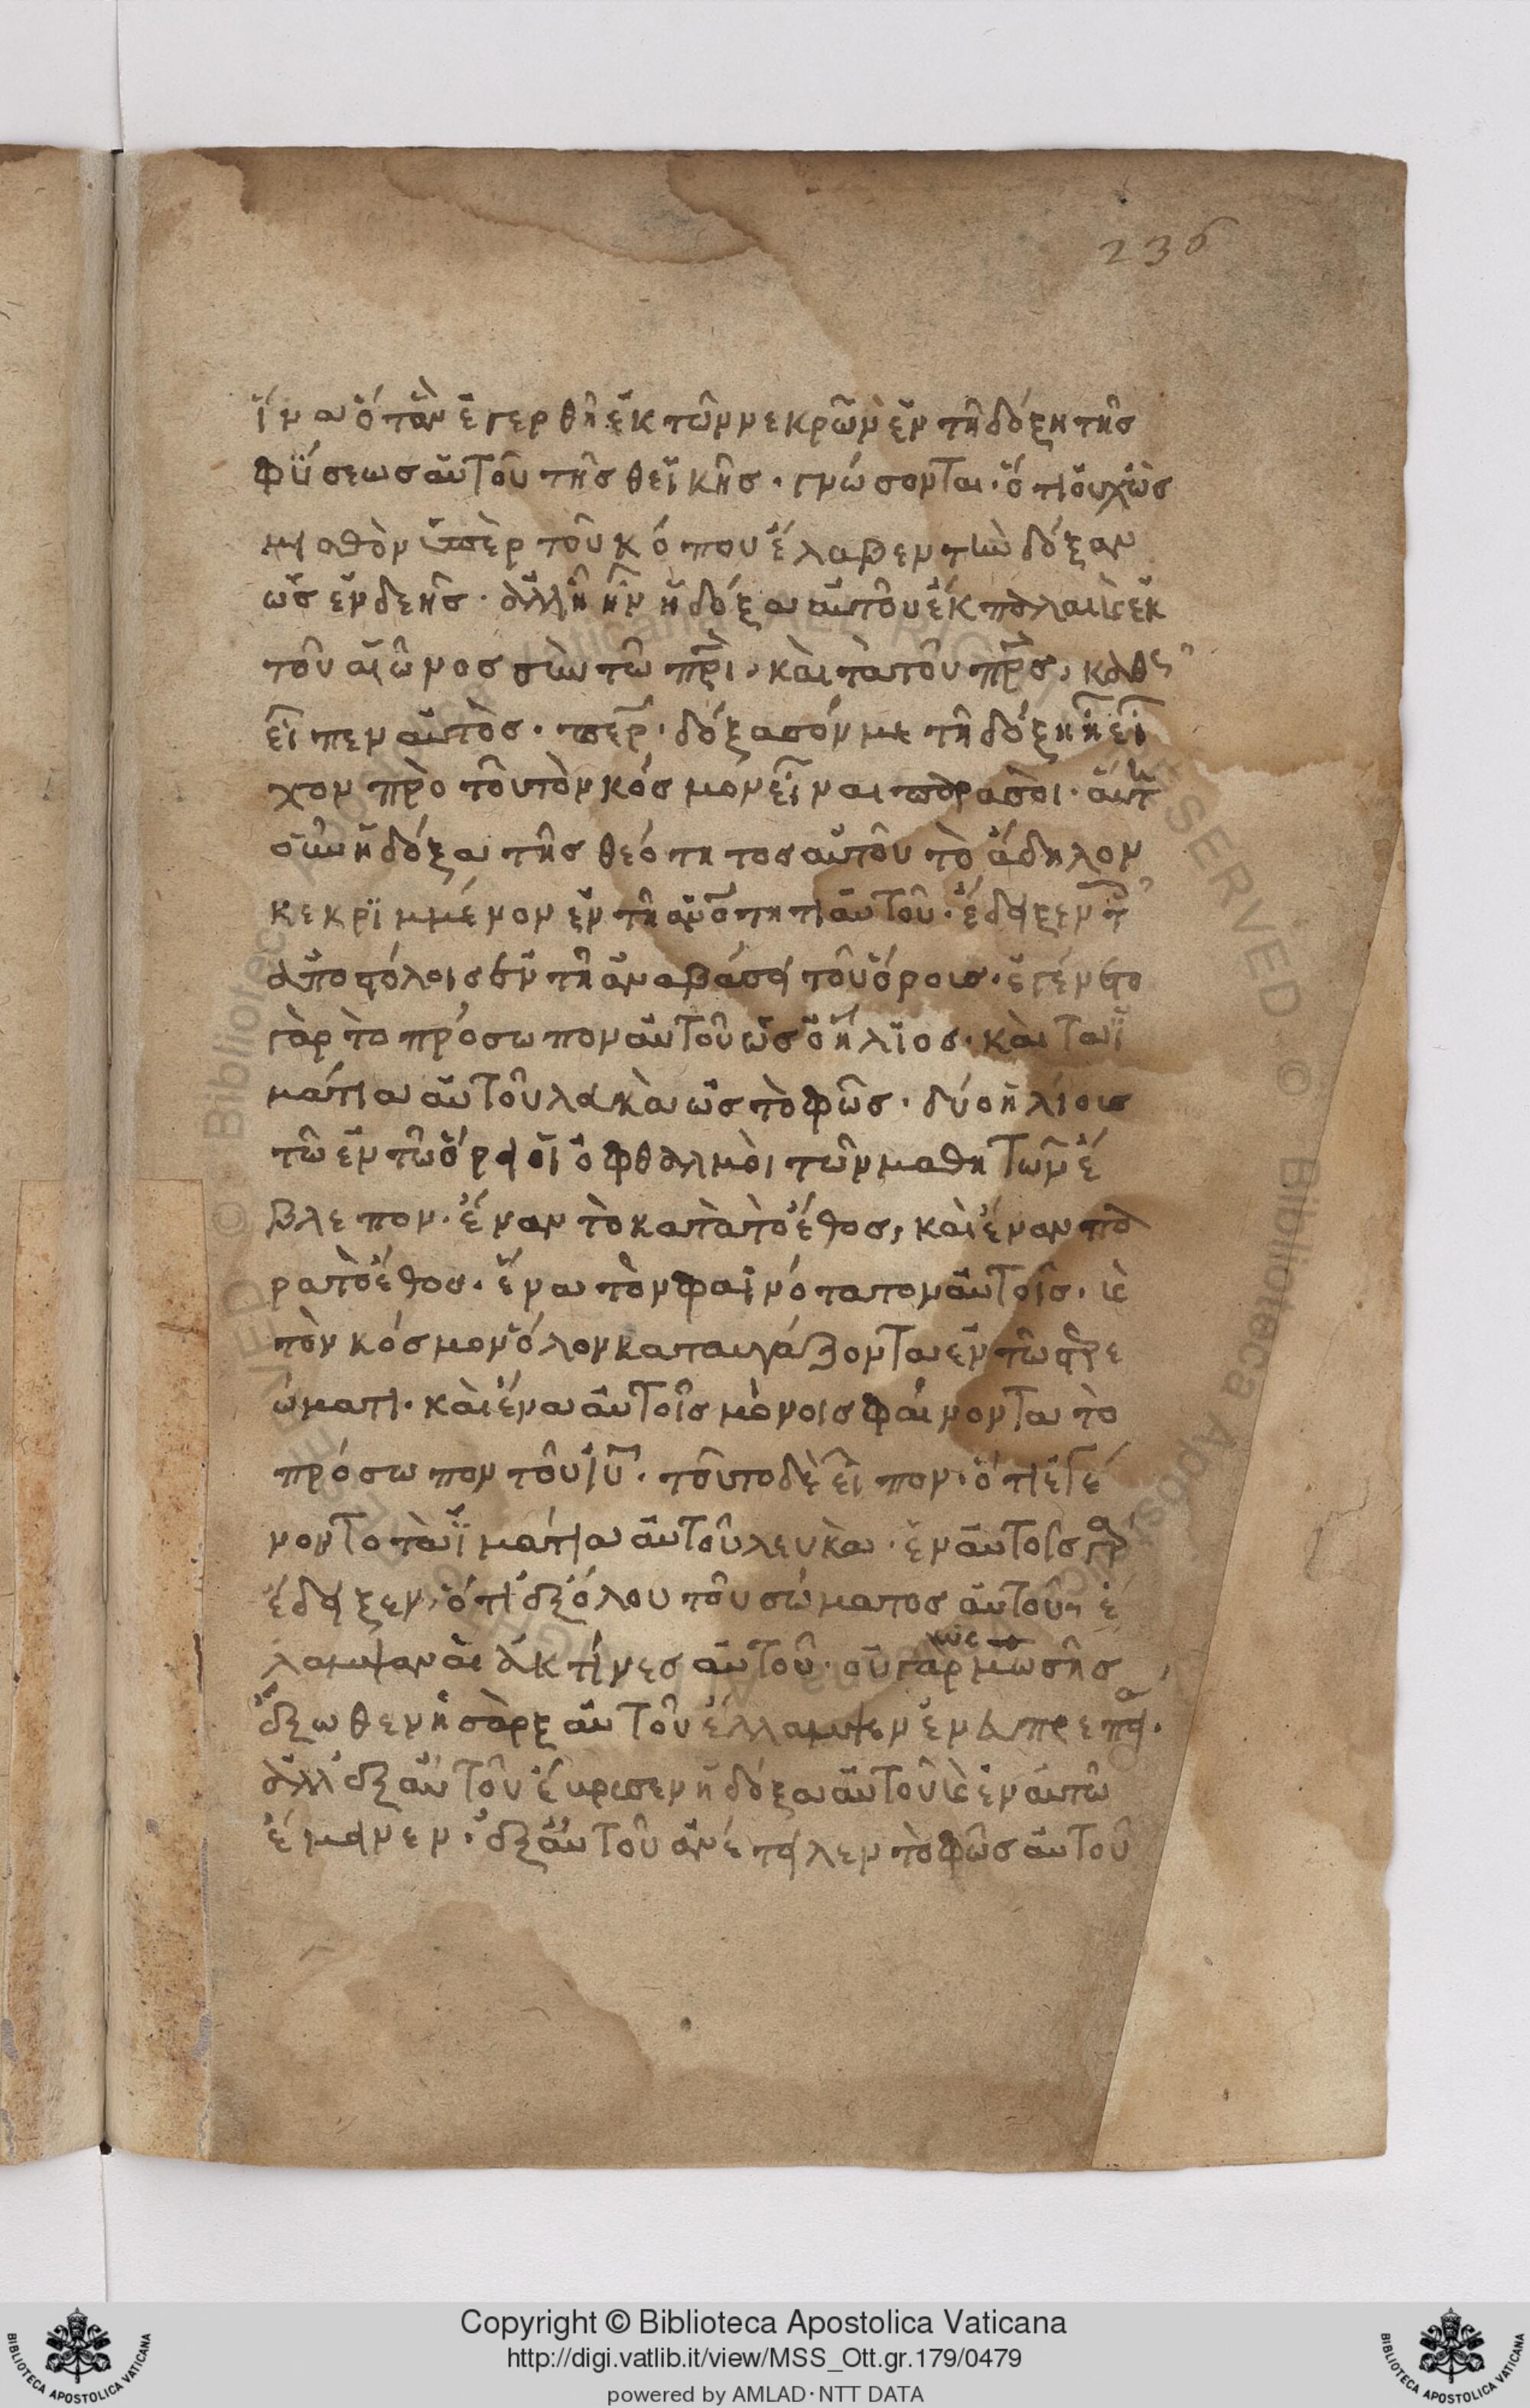 236
ἵνα ὅταν ἐγερθῆ ἐκ τῶν νεκρῶν ἐν τῆ δόξη τῆς
φύσεως αὐτοῦ τῆς θεϊκῆς· γνώσονται· ὅτι οὐχ ὡς
μισθὸν ὑπὲρ τοῦ κόπου ἔλαβεν τὴν δόξαν
ὡς ἐνδεὴς· ἀλλ' ἦν ἡ δόξα αὐτοῦ ἐκ πάλαι κὲ ἐκ
τοῦ αἰῶνος σὺν τῶ πρ̅ι, καὶ τὰ τοῦ πρ̅σ, καθς
εἶπεν αὐτὸς· περ· δόξασόν με τῆ δόξη ἣ εἶ
χον πρὸ τοῦ τὸν κόσμον εἶναι παρα σοὶ· αὕτ
οὖν ἡ δόξα τῆς θεότητος αὐτοῦ τὸ ἄδηλον
κεκρϊμμένον ἐν τῆ αν̅ο̅τητι αὐτοῦ· ἔδειξεν τ
ἀποστόλοις ἐν τῆ ἀναβάσει τοῦ ὄρους· ἐγένετο
γὰρ τὸ πρόσωπον αὐτοῦ ὡς ὁ ἥλϊος· καὶ τα ϊ
μάτια αὐτοῦ λευκὰ ὡς τὸ φῶς· δύο ἡλίους
τῶ ἐν τῶ ὄρει οἱ ὀφθαλμοὶ τῶν μαθητῶν ἔ
βλεπον· ἕναν τὸ κατὰ τὸ ἔθος, καὶ ἕναν πα
ρα τὸ ἔθος· ἕνα τὸν φαινότατον αὐτοῖς· κὲ
τὸν κόσμον ὅλον καταυγάζοντα ἐν τῶ στερε
ώματι· καὶ ἕνα αὐτοῖς μόνοις φαίνοντα τὸ
πρόσωπον τοῦ ἰυ̅· τοῦτο δὲ εἶπον· ὅτι ἐγέ
νοντο τὰ ϊμάτια αὐτοῦ λευκὰ· ἐν αὐτοῖς γρ
ἔδειξεν, ὅτι ἐξ ὅλου τοῦ σώματος αὐτοῦ ἔ
λαμψαν αἱ ἀκτίνες αὐτοῦ· οὐ γαρ ὡς μωσῆς
ἔξωθεν ἡ σὰρξ αὐτοῦ ἔλλαμψεν ἐν εὐπρεπεία·
ἀλλ' ἐξ αὐτοῦ ἔκρυσεν ἡ δόξα αὐτοῦ κὲ ἐν αὐτῶ
ἔμεινεν· ἐξ αὐτοῦ ἀνέτειλεν τὸ φῶς αὐτοῦ
Copyright © Biblioteca Apostolica Vaticana
http://digi.vatlib.it/view/MSS_Ott.gr.179/0479
powered by AMLAD·NTT DATA
BIBLIOTECA APOSTOLICA VATICANA
BIBLIOTECA APOSTOLICA VATICANA